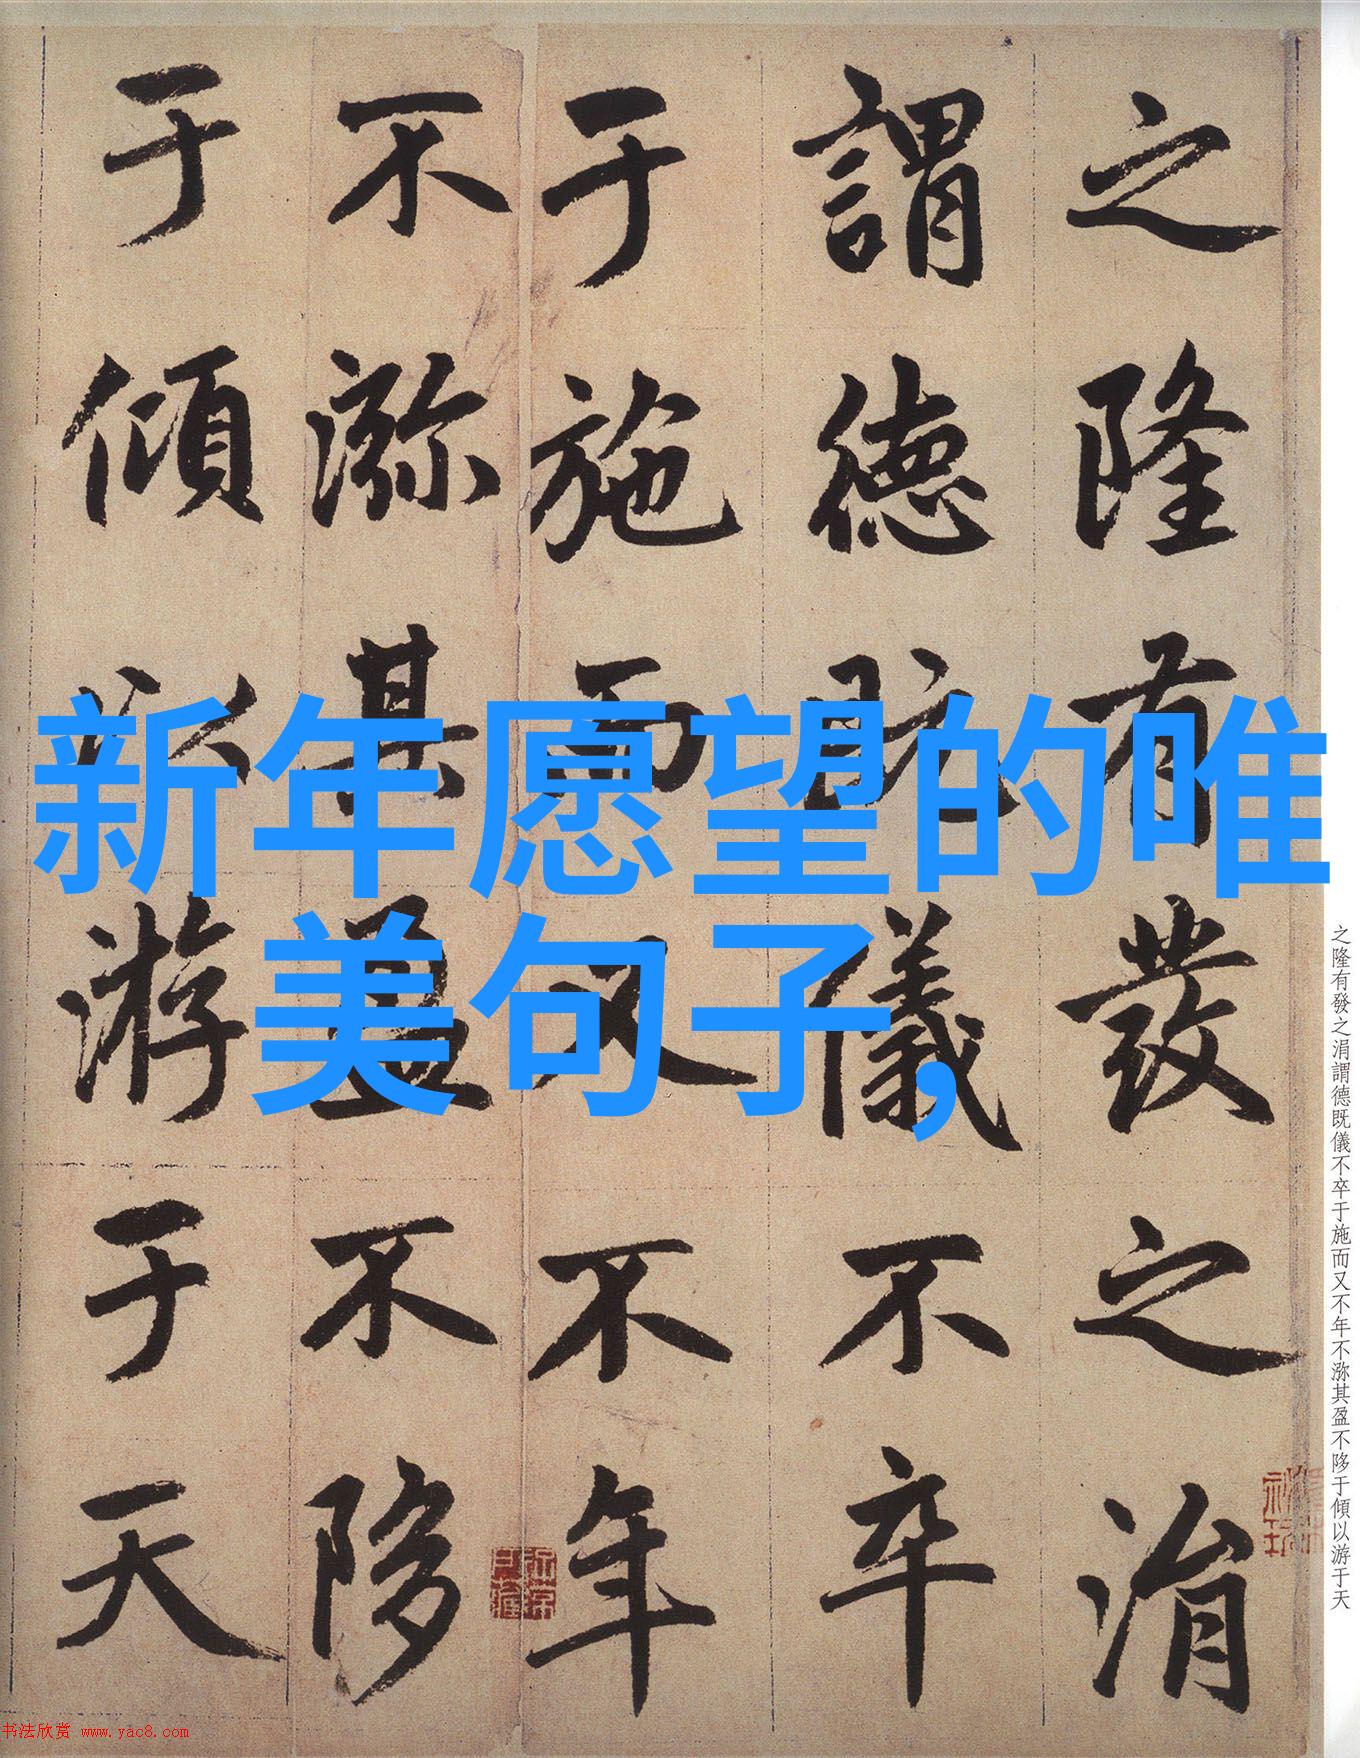 新年愿望的唯
美句子,
之隆有發之涓
謂德既儀不卒
于施而又不年
不㳽其盈不陊
于傾以游于天
之隆有發之涓謂德既儀不卒于施而又不年不㳽其盈不陊于傾以游于天
书法欣赏 www.yac8.com